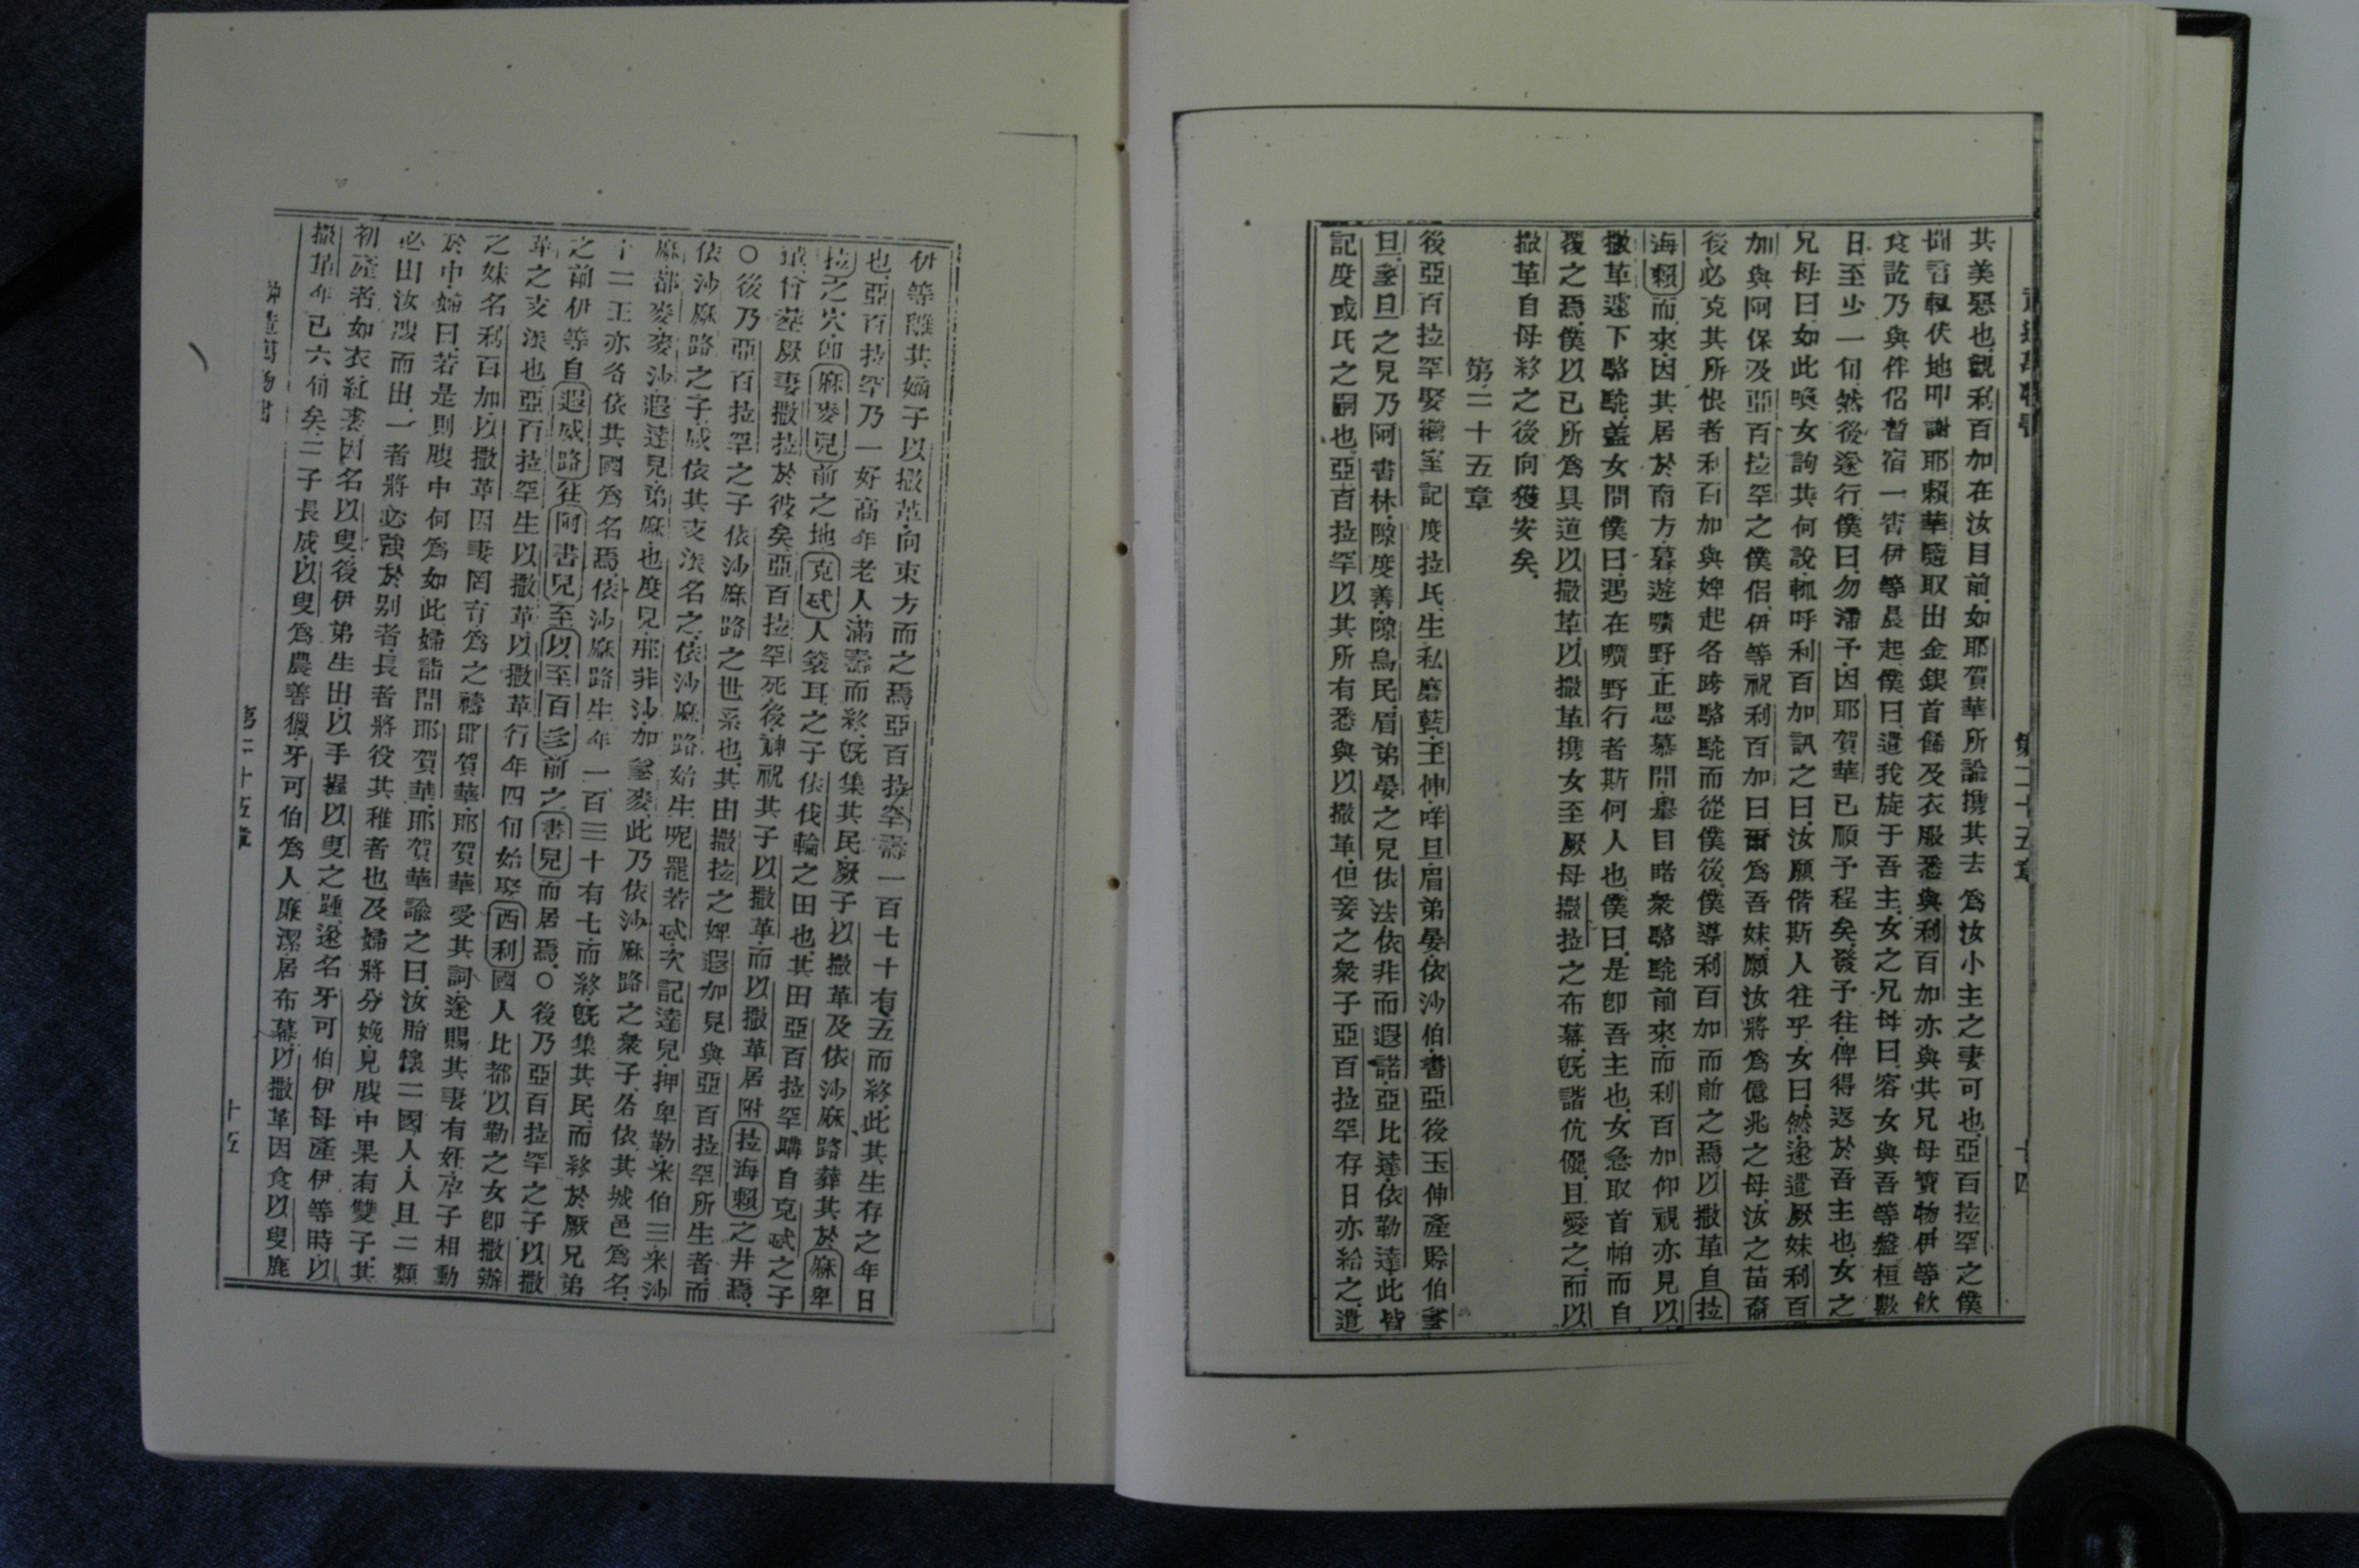 第二十五章
十四
其美惡也觀利百加在汝目前如耶賀華所諭擕其去為汝小主之妻可也亞百拉罕之僕
聞言輒伏地叩謝耶賀華隨取出金銀首餙及衣服悉與利百加亦與其兄母寶物伊等飲
食訖乃與伴侶暫宿一宵伊等晨起僕曰遣我旋于吾主女之兄母曰容女與吾等盤桓數
日至少一旬然後遂行僕曰勿滯予因耶賀華已順予程矣發予往俾得返於吾主也女之
兄母曰如此喚女詢其何說輒呼利百加訊之曰汝願偕斯人往乎女曰然遂遣厥妹利百
加與阿保及亞百拉罕之僕侶伊等祝利百加曰爾為吾妹願汝將為億兆之母汝之苗裔
後必克其所恨者利百加與婢起各跨駱駝而從僕後僕導利百加而前之焉以撒革自拉
海賴而來因其居於南方暮遊曠野正思慕間舉目睹衆駱駝前來而利百加仰視亦見以
撒革遽下駱駝蓋女問僕曰遇在曠野行者斯何人也僕曰是卽吾主也女急取首帕而自
覆之焉僕以已所為具道以撒革以撒革擕女至厥母撒拉之布幕旣諧伉儷且愛之而以
撒革自母終之後向獲安矣
第二十五章
後亞百拉罕娶繼室記度拉氏生私磨藍王伸咩旦眉弟晏依沙伯書亞後玉伸產賒伯
旦之兒乃阿書林隙度善隙烏民眉弟晏之兒依法依非而遐諾亞比達依勒達此皆
記度或氏之嗣也亞百拉罕以其所有悉與以撒革但妾之衆子亞百拉罕存日亦給之遣
伊等離其嫡子以撒革向東方而之焉亞百拉罕壽一百七十有五而終此其生存之年日
也亞百拉罕乃一好高年老人滿壽而終旣集其民厥子以撒革及依沙麻路葬其於麻卑
拉之穴卽麻麥兒前之地克忒人簑耳之子依伐輪之田也其田亞百拉罕購自克忒之子
葬厥妻撒拉於彼矣亞百拉罕死後神祝其子以撒革而以撒革居附拉海賴之井焉
〇後乃亞百拉罕之子依沙麻路之世系也其由撒拉之婢遐加見與亞百拉罕所生者而
依沙麻路之子咸依其支派名之依沙麻路始生呢罷若忒次記達兒押卑勒米伯三米沙
麻都麥麥沙遐達見弟麻也度兒那非沙加麥此乃依沙麻路之衆子各依其城邑為名
十二王亦各依其國為名焉依沙麻路生年一百三十有七而終旣集其民而終於厥兄弟
之前伊等自遐威路往阿書兒至以至百前之書兒而居焉〇後乃亞百拉罕之子以撒
革之支派也亞百拉罕生以撒革以撒革行年四旬始娶西利國人比都以勒之女卽撒辦
之妹名利百加以撒革因妻罔育為之禱耶賀華耶賀華受其詞遂賜其妻有妊孕子相動
於中婦曰若是則腹中何為如此婦詣問耶賀華耶賀華諭之曰汝胎懷二國人人且二類
必由汝而出一者將必強於别者長者將役其稚者也及婦將分娩見腹中果有雙子其
初產者如衣紅裘因名以叟後伊弟生出以手握以叟之踵遂名牙可伯伊母產伊等時以
撒革年已六旬矣二子長成以叟為農善獵牙可伯為人廉潔居布幕以撒革因食以叟鹿
第二十五章
十五